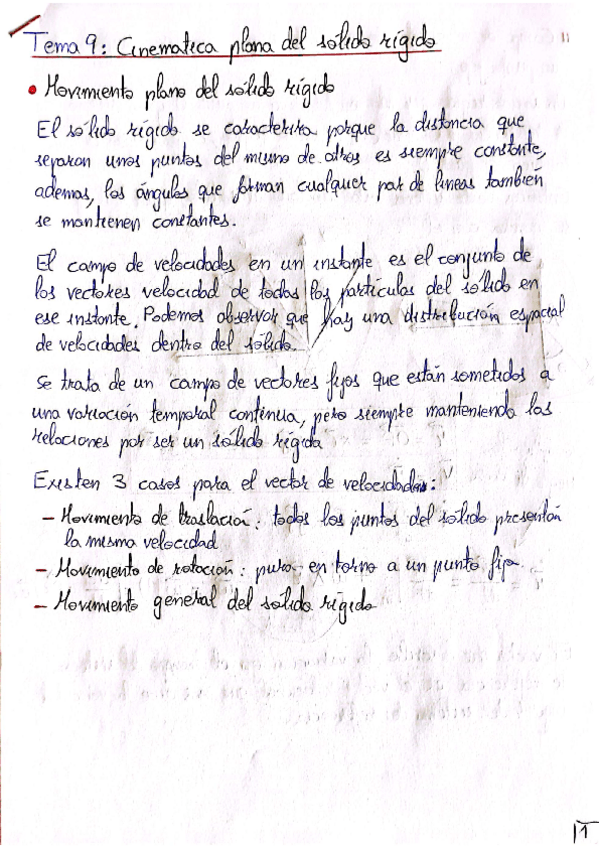 Tema 9: Cinematica plana del sólido rígido
• Movimiento plano del sólido rígido
El sólido rígido se caracteriza porque la distancia que
separan unos puntos del mismo de otros es siempre constante,
ademas, los ángulos que forman cualquier par de líneas también
se mantienen constantes.
El campo de velocidades en un instante es el conjunto de
los vectores velocidad de todas las partículas del sólido en
ese instante. Podemos observar que hay una distribución espacial
de velocidades dentro del sólido.
Se trata de un campo de vectores fijos que están sometidos a
una variación temporal continua, pero siempre manteniendo las
relaciones por ser un sólido rígido
Existen 3 casos para el vector de velocidades:
- Movimiento de traslación: todos los puntos del sólido presentan
la misma velocidad
- Movimiento de rotación: pura en torno a un punto fijo
- Movimiento general del sólido rígido
1